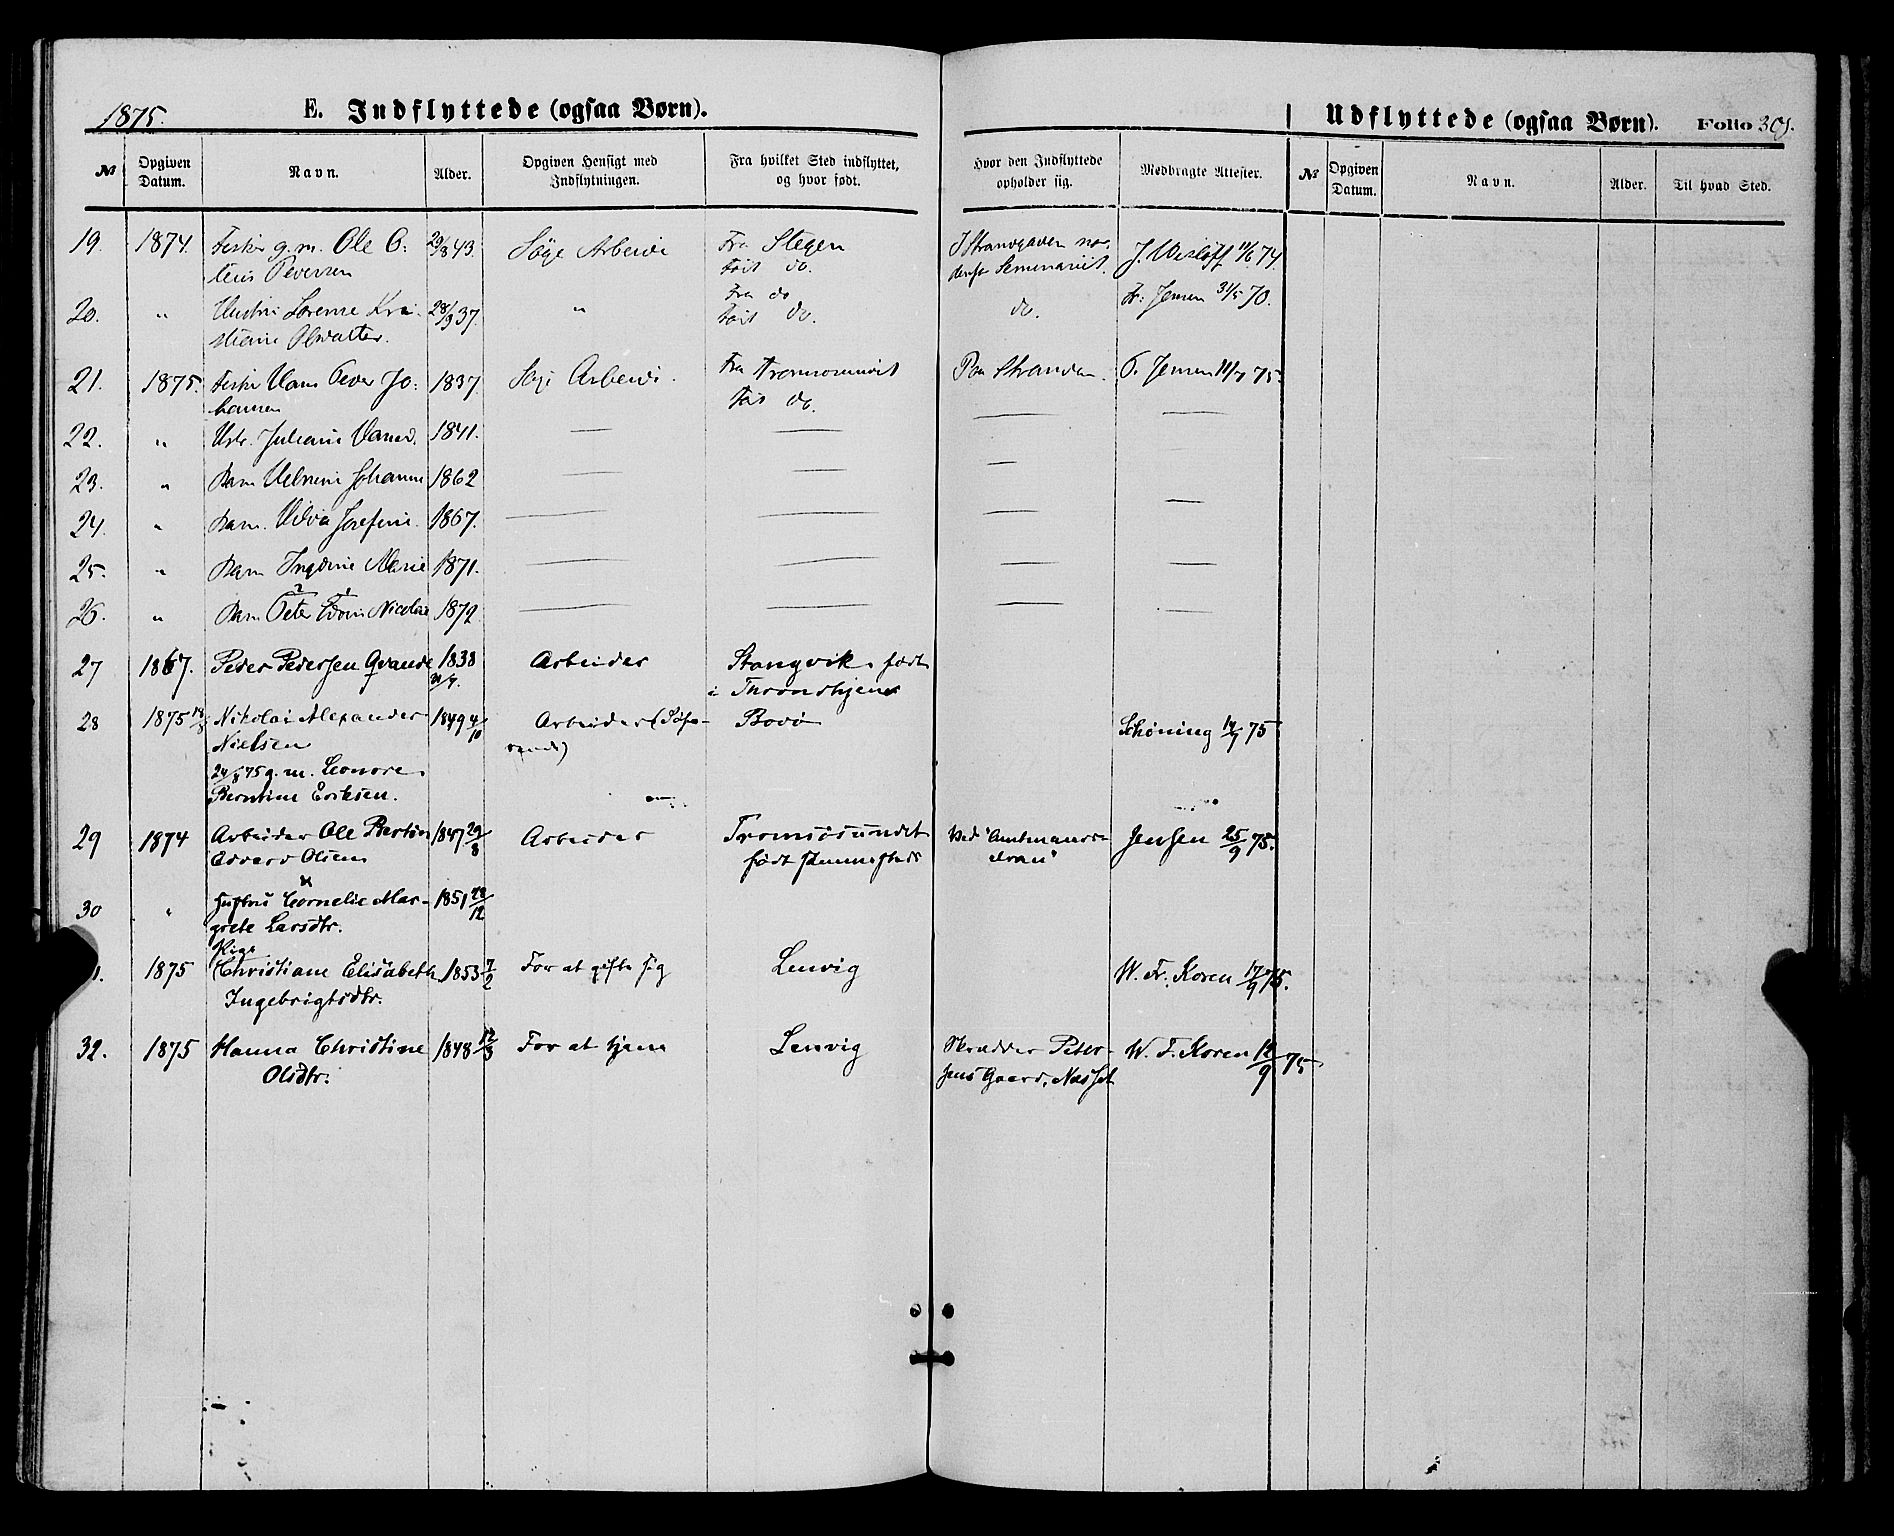 1875.
E. Indflyttede (ogsaa Børn).
Udflyttede (ogsaa Børn). Folio 301.
№ Opgiven Datum. Navn. Alder. Opgiven Hensigt med Indflytningen. Fra hvilket Sted indflyttet, og hvor født. Hvor den Indflyttede opholder sig. Medbragte Attester. № Opgiven Datum. Navn. Alder. Til hvad Sted.
19. 1874. Fisker g. m. Ole C: 29/8 43. Søge Arbeide Fra Stegen I Strandgaden J. Wisløff 11/6 74.
født do. Seminariet.
20. " Hustru Lorense Kri- 28/9 37. " Fra do do. Fr: Jensen 31/5 70.
stiane født do.
21. 1875. Fisker Hans Peder Jo- 1837. Søge Arbeide. Fra Tromsøsundet Paa Stranden. Jensen 11/7 75.
hansen født do.
22. " Hstr. Juliane 1841. — — — —
23. " Barn Johanne 1862 — — — —
24. " Barn. Josefine. 1867. — — — —
25. " Barn Ingdine Marie 1871. — — — —
26. " Barn Peter Edvin Nicolai 1872. — — — —
27 1867. Peder Pedersen Qvande 1838 Arbeider Stangvik, født
i Throndhjem
28 1875 Nikolai Alexander 1849 4/10 Arbeider (Søfa- Bodø Schöning 14/7 75
Nielsen rende)
24/8 75 g. m. Leonore
Berntine Eriksen.
29 1874 Arbeider Ole Bertin 1847 29/8 Arbeider Tromsøsundet Ved "Amtmands- Jensen 25/9 75.
Edvard Olsen født sammesteds
30 " Hustru Cornelie Mar- 1851 28/12
grete Larsdtr.
Pige
1. 1875 Christiane Elisabeth 1853 7/2 For at gifte sig Lenvig W. Fr. Koren 17/9 75.
Ingebrigtsdtr.
32. 1875 Hanna Christine 1848 12/3 For at tjene Lenvig Skrædder Peter- W. F. Koren 12/9 75
Olsdtr. sens Gaard, Næsset